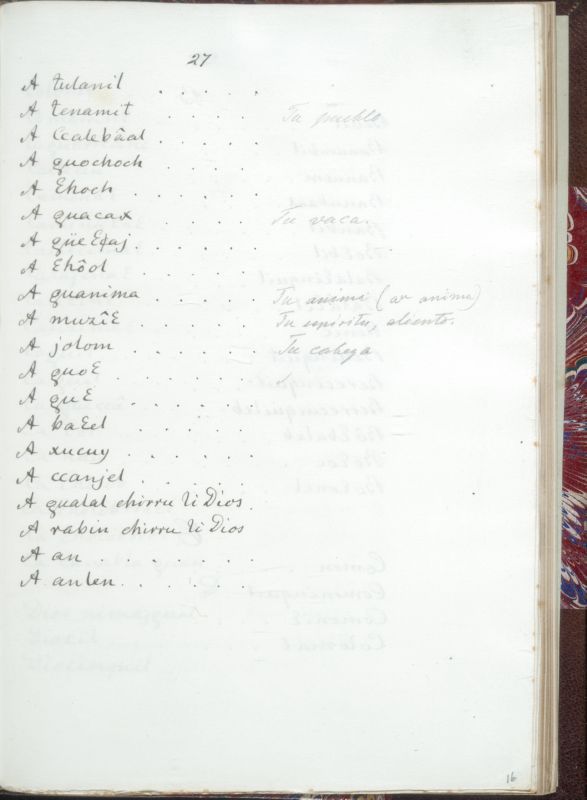 27
A tulanil . . . . .
A tenamit . . . . . Tu pueblo
A Ccalebâal . . . . .
A quochoch . . . . .
A Ɛhoch . . . . . .
A quacax . . . . . Tu vaca.
A . . . . . .
A Ɛhôol . . . . .
A quanima . . . . . Tu anima (ar anima)
A muzîƐ . . . . . Tu espiritu, aliento.
A jolom . . . . . . Tu cabeza
A quoƐ . . . . . .
A quƐ . . . . . .
A baƐel . . . . . .
A xucuy . . . . . .
A ccanjel . . . . .
A qualal chirru li Dios .
A rabin chirru li Dios
A an . . . . . . .
A anlen . . . . . .
16